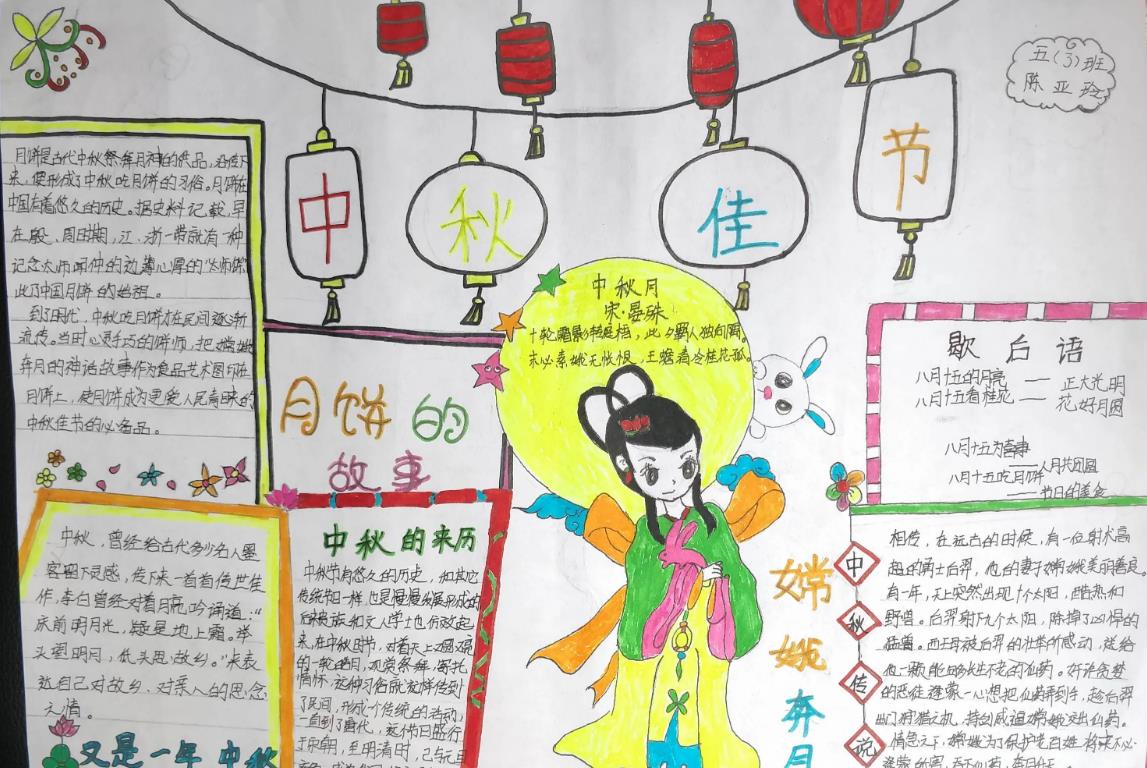 五(3)班
陈亚玲
中秋佳节
月饼是古代中秋祭拜月神的供品，沿传下
来，便形成了中秋吃月饼的习俗。月饼在
中国有着悠久的历史。据史料记载，早
在殷、周时期，江、浙一带就有一种
记念太师闻仲的边薄心厚的“太师饼”
此乃中国月饼的始祖。
到了明代，中秋吃月饼才在民间逐渐
流传。当时心灵手巧的饼师，把嫦娥
奔月的神话故事作为食品艺术图印在
月饼上，使月饼成为更受人民青睐的
中秋佳节的必备品。
月饼的
故事
中秋月
宋·晏殊
十轮霜影转庭梧，此夕羁人独向隅。
未必素娥无怅恨，玉蟾清冷桂花孤。
歇后语
八月十五的月亮 — 正大光明
八月十五看桂花 — 花好月圆
八月十五为喜事
——人月共团圆
八月十五吃月饼
——节日的美食
中秋，曾经给古代多少名人墨
客留下灵感，传下来一首首传世佳
作，李白曾经对着月亮吟诵道：“
床前明月光，疑是地上霜。举
头望明月，低头思故乡。”来表
达自己对故乡、对亲人的思念
之情。
又是一年中秋
中秋的来历
中秋节有悠久的历史，和其它
传统节日一样，也是慢慢发展形成的
来，在中秋时节，对着天上又圆又亮
的一轮皓月，观赏祭拜，寄托
情怀，这种习俗就这样传到
了民间，形成个传统的活动，
一直到了唐代，这种
嫦娥奔月
中秋传说
相传，在远古的时候，有一位射术高
超的勇士后羿，他的妻子嫦娥美丽善良。
有一年，天上突然出现十个太阳，酷热和
野兽。后羿射下九个太阳，除掉了凶悍的
猛兽。西王母被后羿的壮举所感动，送给
他一颗能够长生不老的仙药。
的恶徒逢蒙一心想把仙药弄到手，趁后羿
出门狩猎之机，持剑威逼嫦娥交出仙药。
情急之下，嫦娥为了保护老百姓